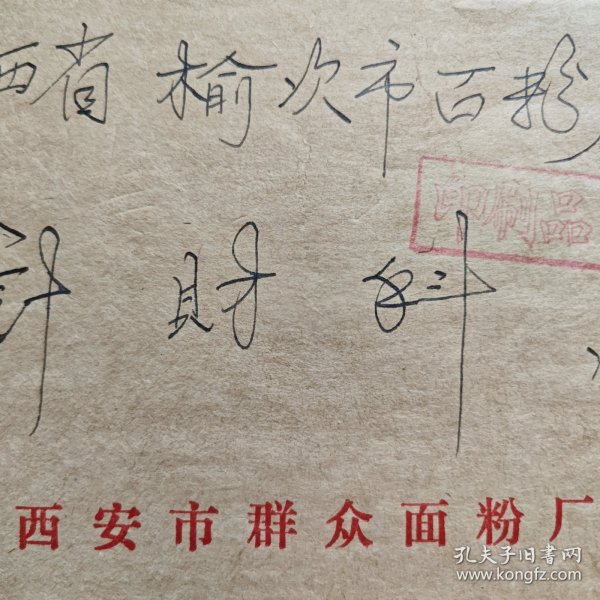 西省 榆次市面粉厂
印刷品
计 财 科
西安市群众面粉厂
孔夫子旧书网
www.kongfz.com